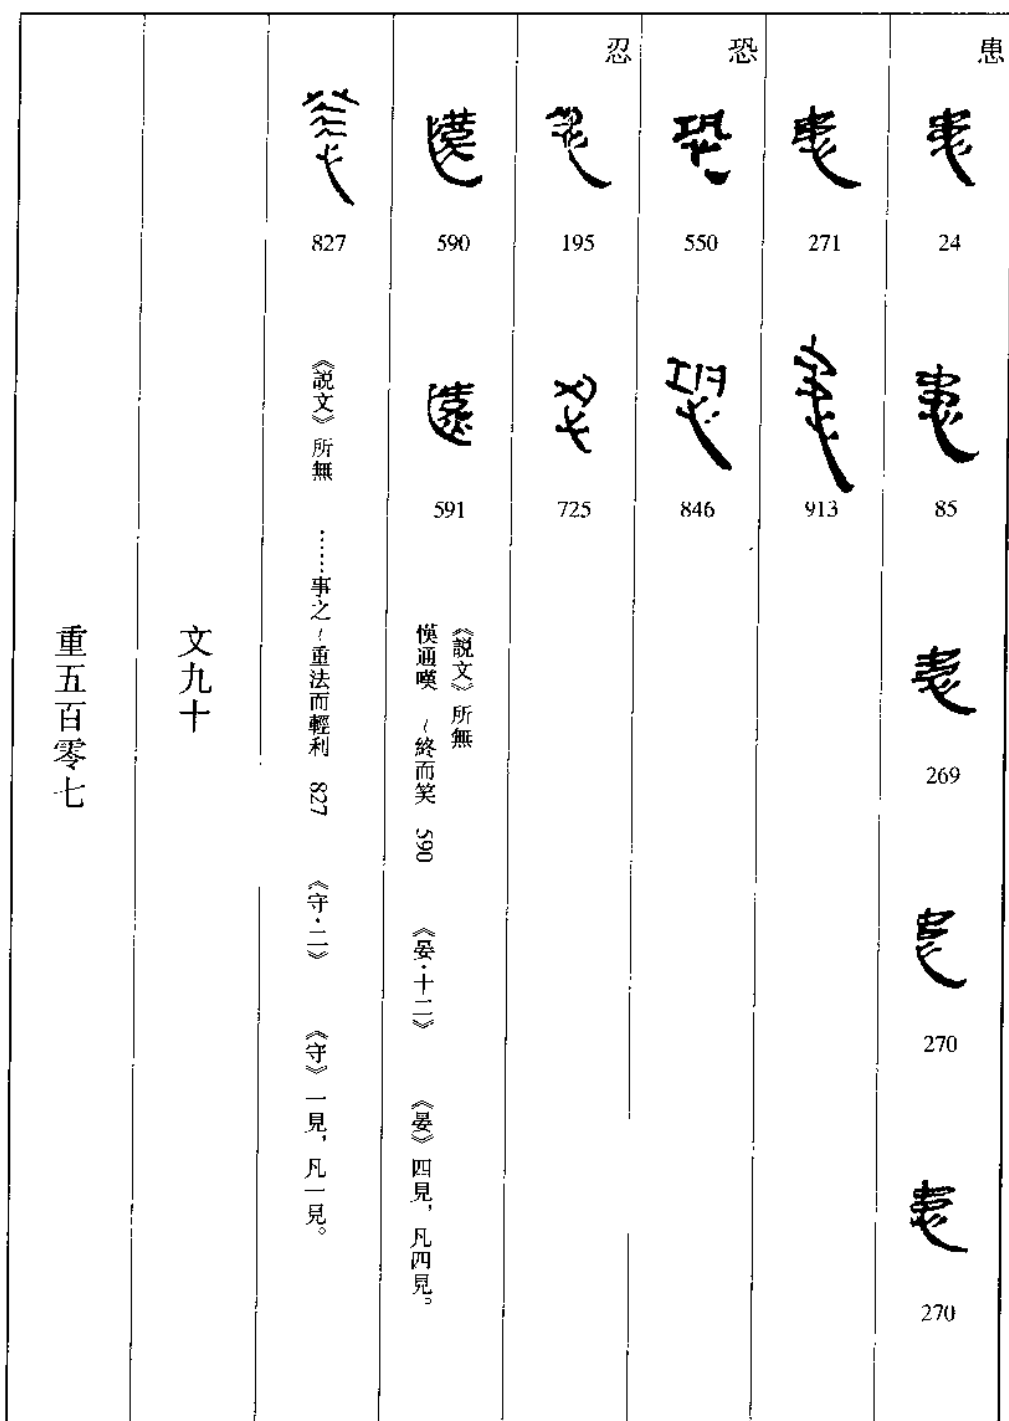 患
24
85
269
270
270
271
913
恐
550
846
忍
195
725
590
591
《説文》所無
慔通嘆　～終而笑　590　《晏·十二》　《晏》四見，凡四見。
827
《説文》所無　……事之～重法而輕利　827　《守·二》　《守》一見，凡一見。
文九十
重五百零七